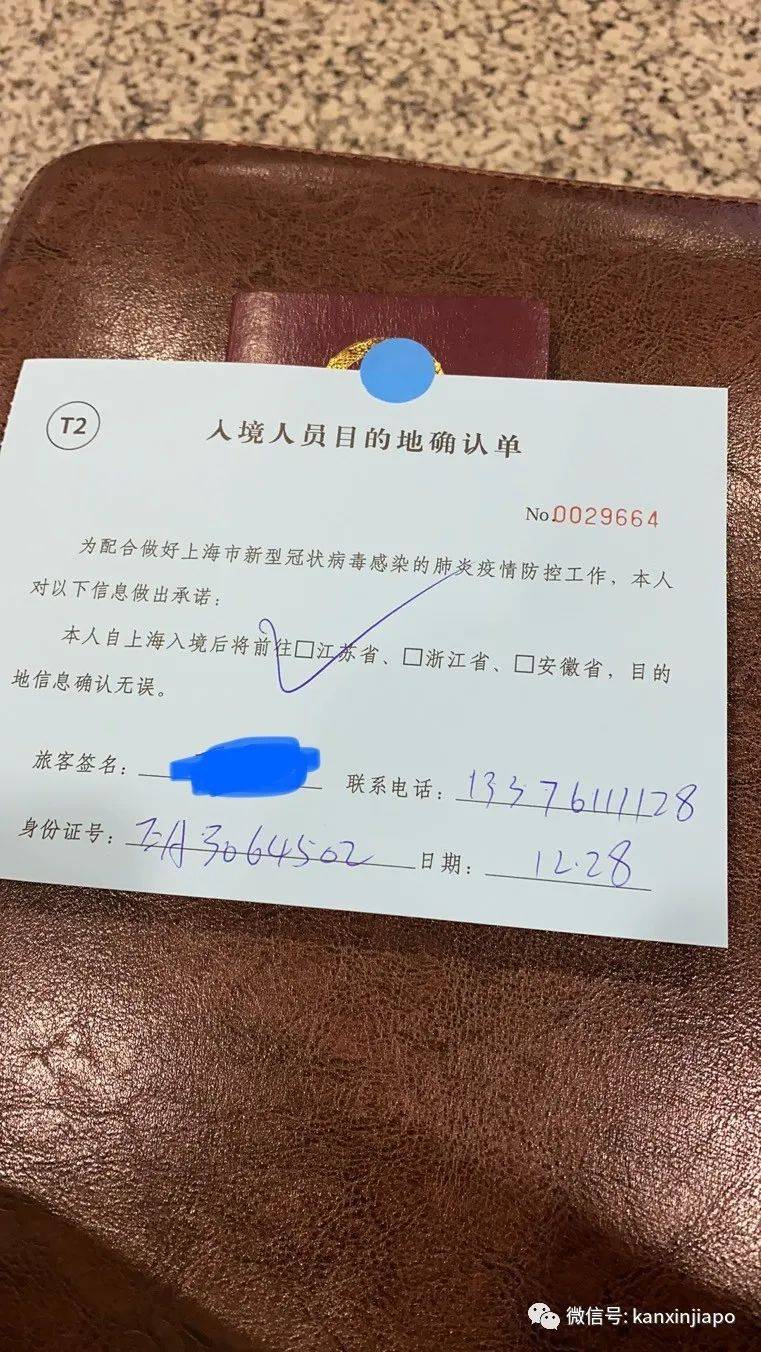 T2
入境人员目的地确认单
No.0029664
为配合做好上海市新型冠状病毒感染的肺炎疫情防控工作，本人
对以下信息做出承诺：
本人自上海入境后将前往□江苏省、□浙江省、□安徽省，目的
地信息确认无误。
旅客签名： 联系电话：13376111128
身份证号：EA3064502 日期：12.28
微信号: kanxinjiapo